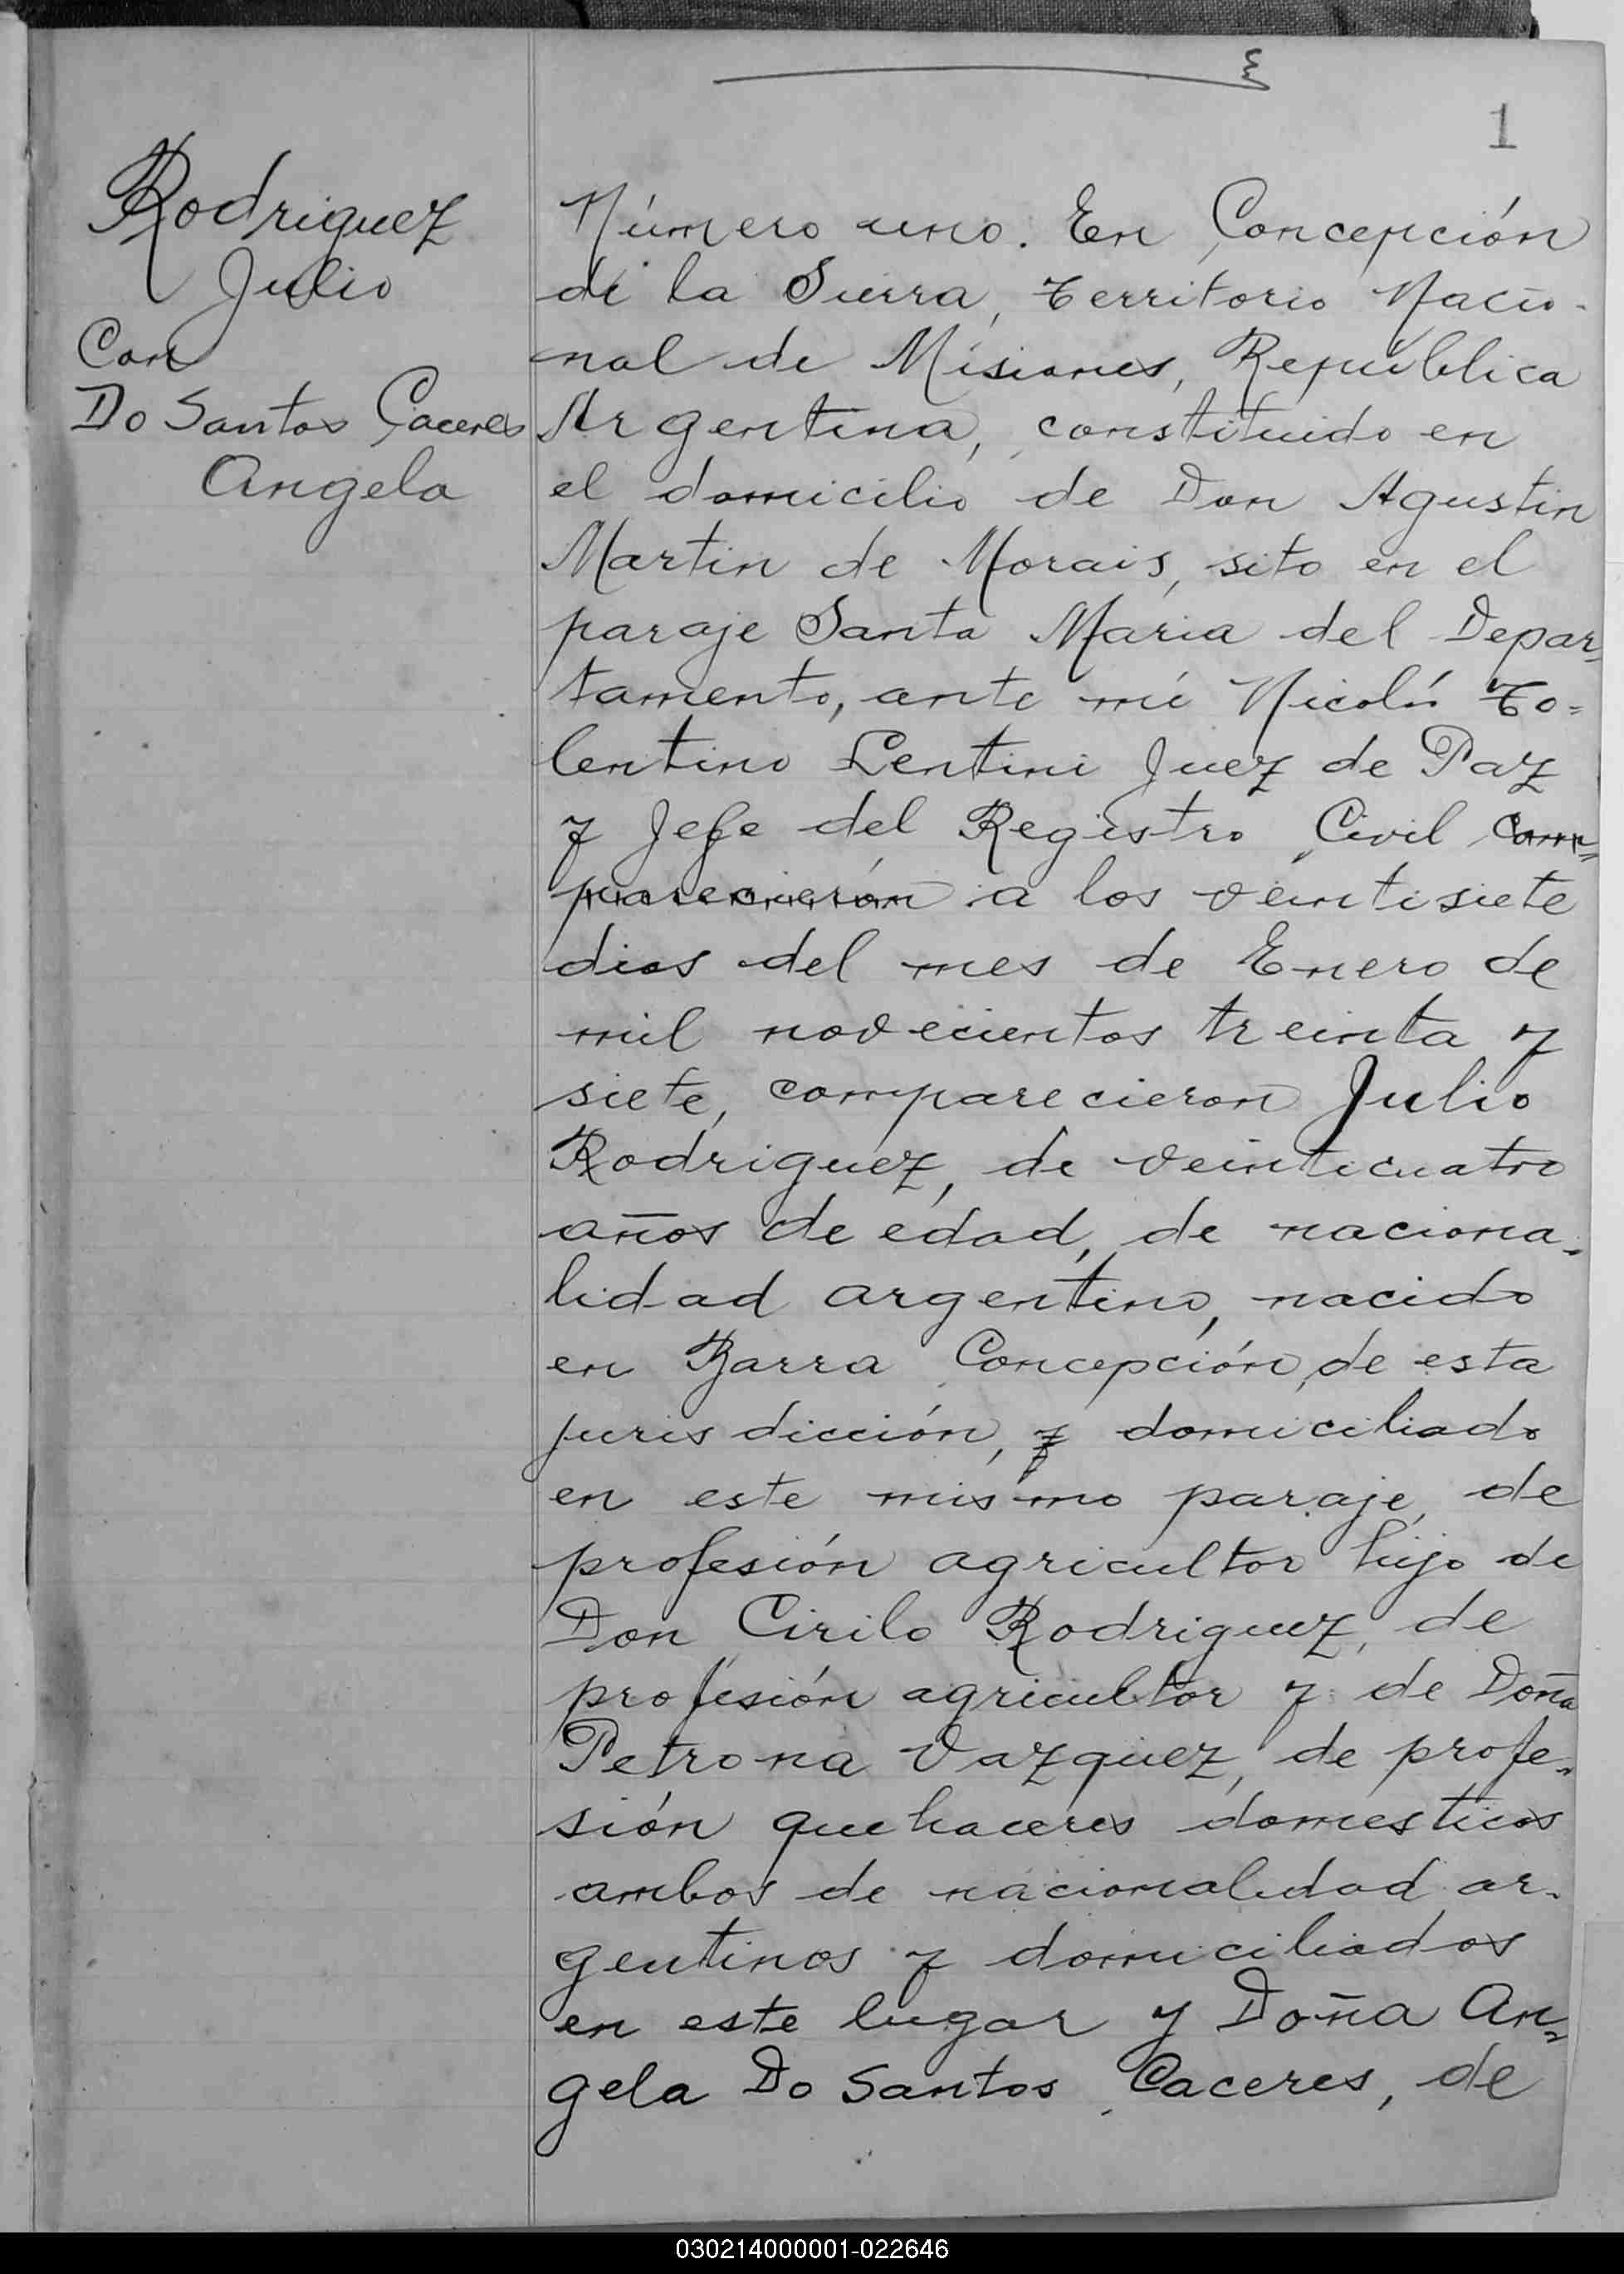 1
Rodriguez
Julio
Con
Do Santos Caceres
Angela
Número uno. En Concepción
de la Sierra, Territorio Nacio-
nal de Misiones, República
Argentina, constituido en
el domicilio de Don Agustin
Martin de Morais, sito en el
paraje Santa Maria del Depar-
tamento, ante mí Nicolás To=
lentino Lentini Juez de Paz
y Jefe del Registro Civil com=
parecieron a los veintisiete
dias del mes de Enero de
mil novecientos treinta y
siete, comparecieron Julio
Rodriguez, de veinticuatro
años de edad, de naciona-
lidad argentino, nacido
en Barra Concepción, de esta
jurisdicción, y domiciliado
en este mismo paraje, de
profesión agricultor hijo de
Don Cirilo Rodriguez, de
profesión agricultor y de Doña
Petrona Vazquez, de profe-
sión quehaceres domesticos
ambos de nacionalidad ar-
gentinos y domiciliados
en este lugar y Doña An=
gela Do Santos Caceres, de
030214000001-022646